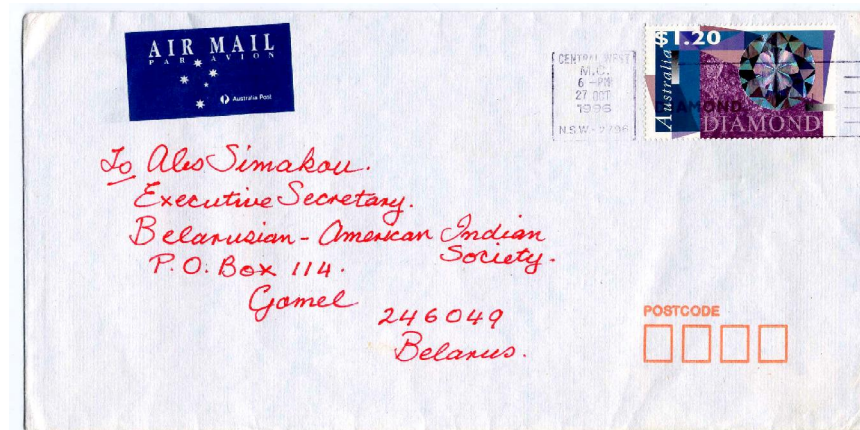 AIR MAIL
PAR AVION
Australia Post
CENTRAL WEST
M.C.
6 -PM
27 OCT
1996
N.S.W - 2796
$1.20
Australia
DIAMOND
DIAMOND
To Ales Simakou.
Executive Secretary.
Belarusian - American Indian
Society.
P.O. Box 114.
Gomel
246049
Belarus.
POSTCODE